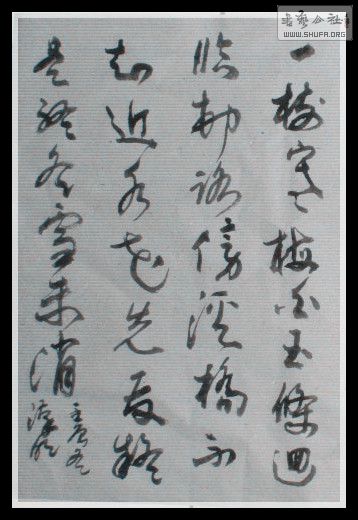 書藝公社
WWW.SHUFA.ORG
一樹寒梅白玉條迴
臨村路傍溪橋不
知近水花先發疑
是經冬雪未消